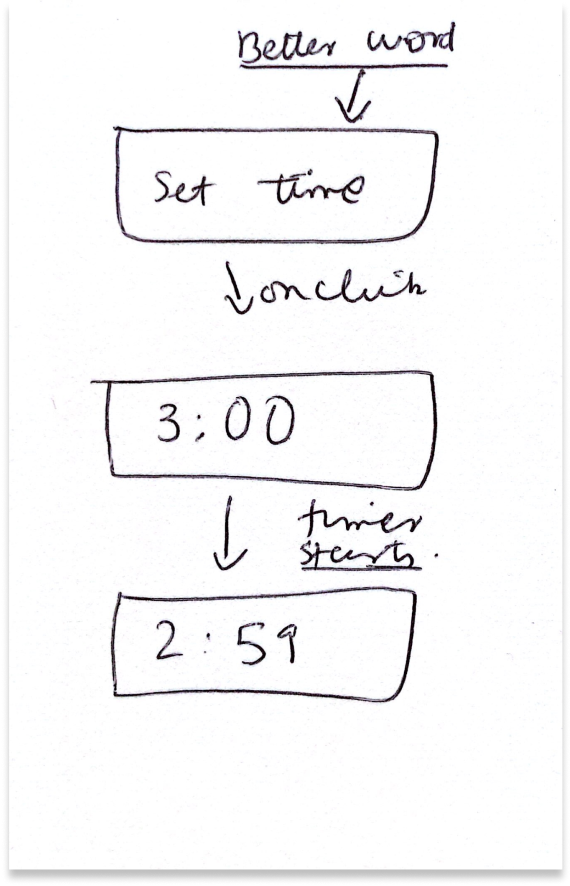 Better word
Set time
onclick
3:00
timer
starts.
2:59